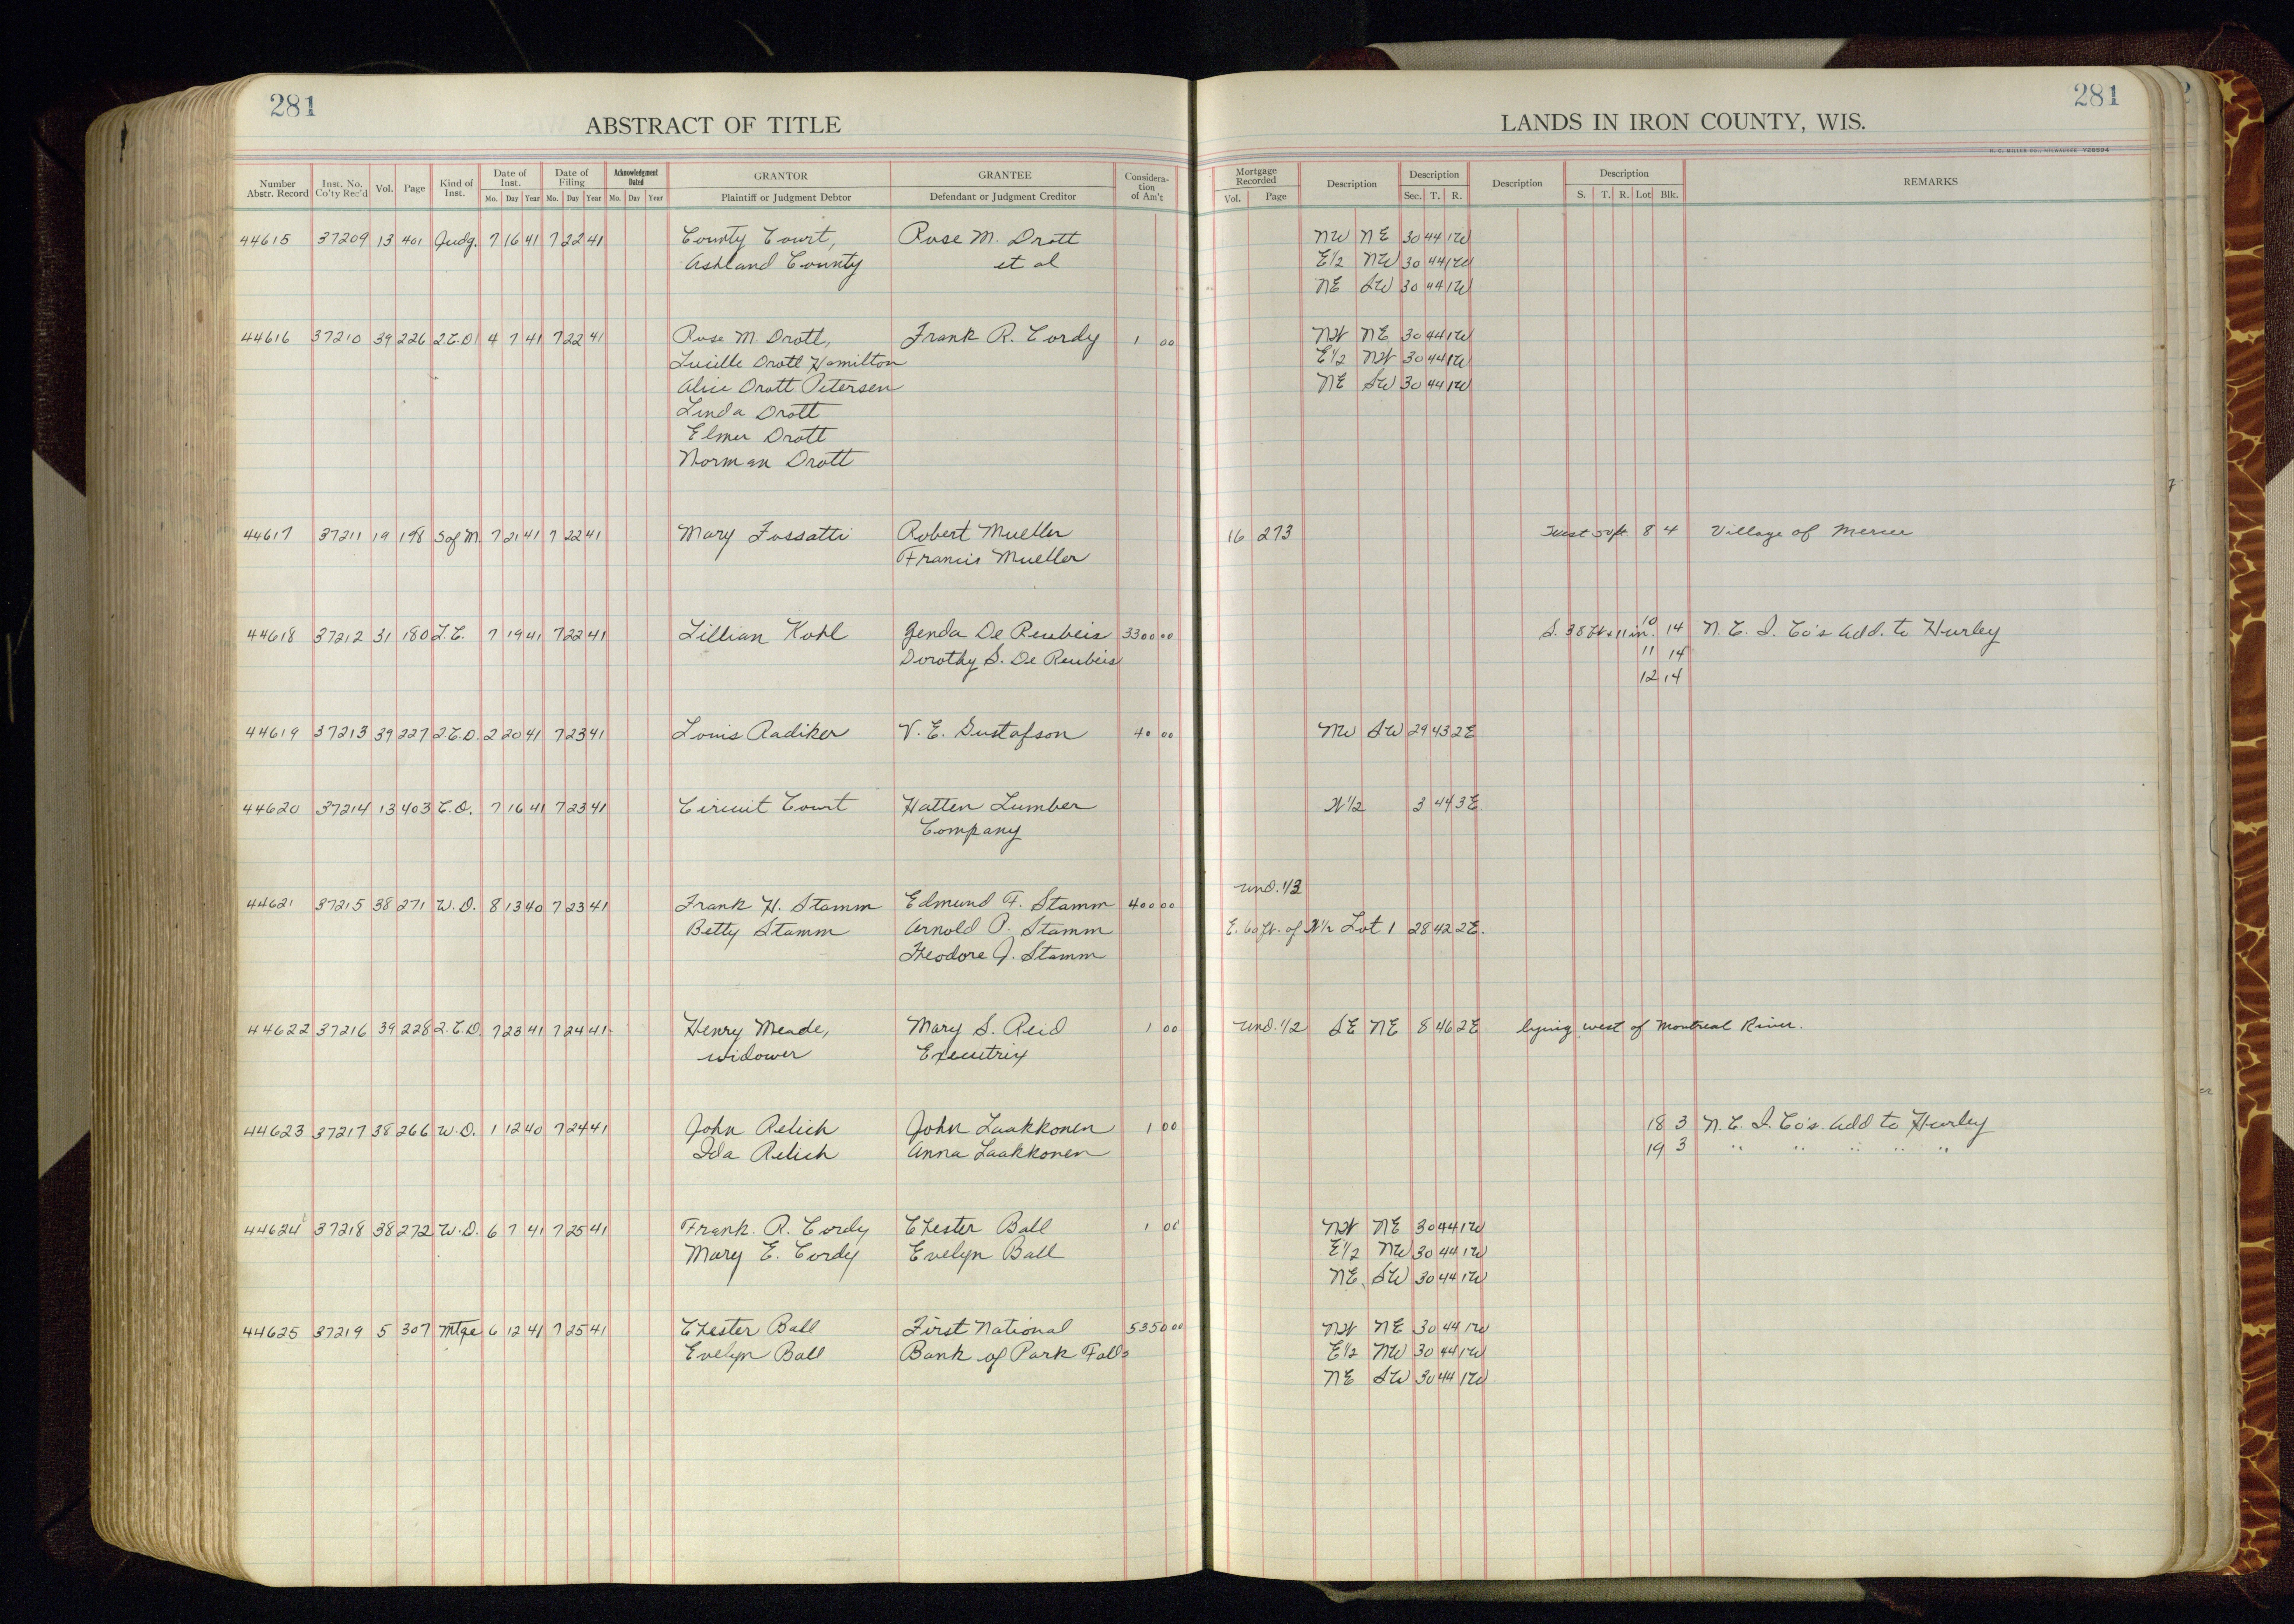 281
ABSTRACT OF TITLE
LANDS IN IRON COUNTY, WIS.
281
H. C. MILLER CO., MILWAUKEE
Number Abstr. Record | Inst. No. Co'ty Rec'd | Vol. | Page | Kind of Inst. | Date of Inst. Mo. Day Year | Date of Filing Mo. Day Year | Acknowledgment Dated Mo. Day Year | GRANTOR Plaintiff or Judgment Debtor | GRANTEE Defendant or Judgment Creditor | Consideration of Am't | Mortgage Recorded Vol. Page | Description | Description Sec. T. R. | Description | Description S. T. R. Lot Blk. | REMARKS
44615 37209 13 401 Judg. 7 16 41 7 22 41 County Court, Rose M. Drott NW NE 30 44 1W
Ashland County et al E1/2 NW 30 44 1W
NE SW 30 44 1W
44616 37210 39 226 Q.C.D. 4 7 41 7 22 41 Rose M. Drott, Frank R. Cordy 1 00 NW NE 30 44 1W
Lucille Drott Hamilton E1/2 NW 30 44 1W
Alice Drott Petersen NE SW 30 44 1W
Linda Drott
Elmer Drott
Norman Drott
44617 37211 19 198 S of M. 7 21 41 7 22 41 Mary Fossatti Robert Mueller 16 273 West 50 ft 8 4 Village of Mercer
Francis Mueller
44618 37212 31 180 L.C. 7 19 41 7 22 41 Lillian Kohl Genda De Reubeis 3300 00 S. 38 ft + 11 in. 10 14 N. C. I. Co's Add. to Hurley
Dorothy S. De Reubeis 11 14
12 14
44619 37213 39 227 Q.C.D. 2 20 41 7 23 41 Louis Radiker V. E. Gustafson 40 00 NW SW 29 43 2E
44620 37214 13 403 C.O. 7 16 41 7 23 41 Circuit Court Hatten Lumber N1/2 3 44 3E
Company
Und. 1/3
44621 37215 38 271 W.D. 8 13 40 7 23 41 Frank H. Stamm Edmund F. Stamm 400 00
Betty Stamm Arnold P. Stamm E. 60 ft. of N1/2 Lot 1 28 42 2E.
Theodore J. Stamm
44622 37216 39 228 Q.C.D. 7 23 41 7 24 41 Henry Meade, Mary S. Reid 1 00 Und. 1/2 SE NE 8 46 2E lying west of Montreal River.
widower Executrix
44623 37217 38 266 W.D. 1 12 40 7 24 41 John Relich John Laakkonen 1 00 18 3 N. C. I. Co's. Add to Hurley
Ida Relich Anna Laakkonen 19 3 " " " " "
44624 37218 38 272 W.D. 6 7 41 7 25 41 Frank. R. Cordy Chester Ball 1 00 NW NE 30 44 1W
Mary E. Cordy Evelyn Ball E1/2 NW 30 44 1W
NE SW 30 44 1W
44625 37219 5 307 Mtge 6 12 41 7 25 41 Chester Ball First National 5350 00 NW NE 30 44 1W
Evelyn Ball Bank of Park Falls E1/2 NW 30 44 1W
NE SW 30 44 1W